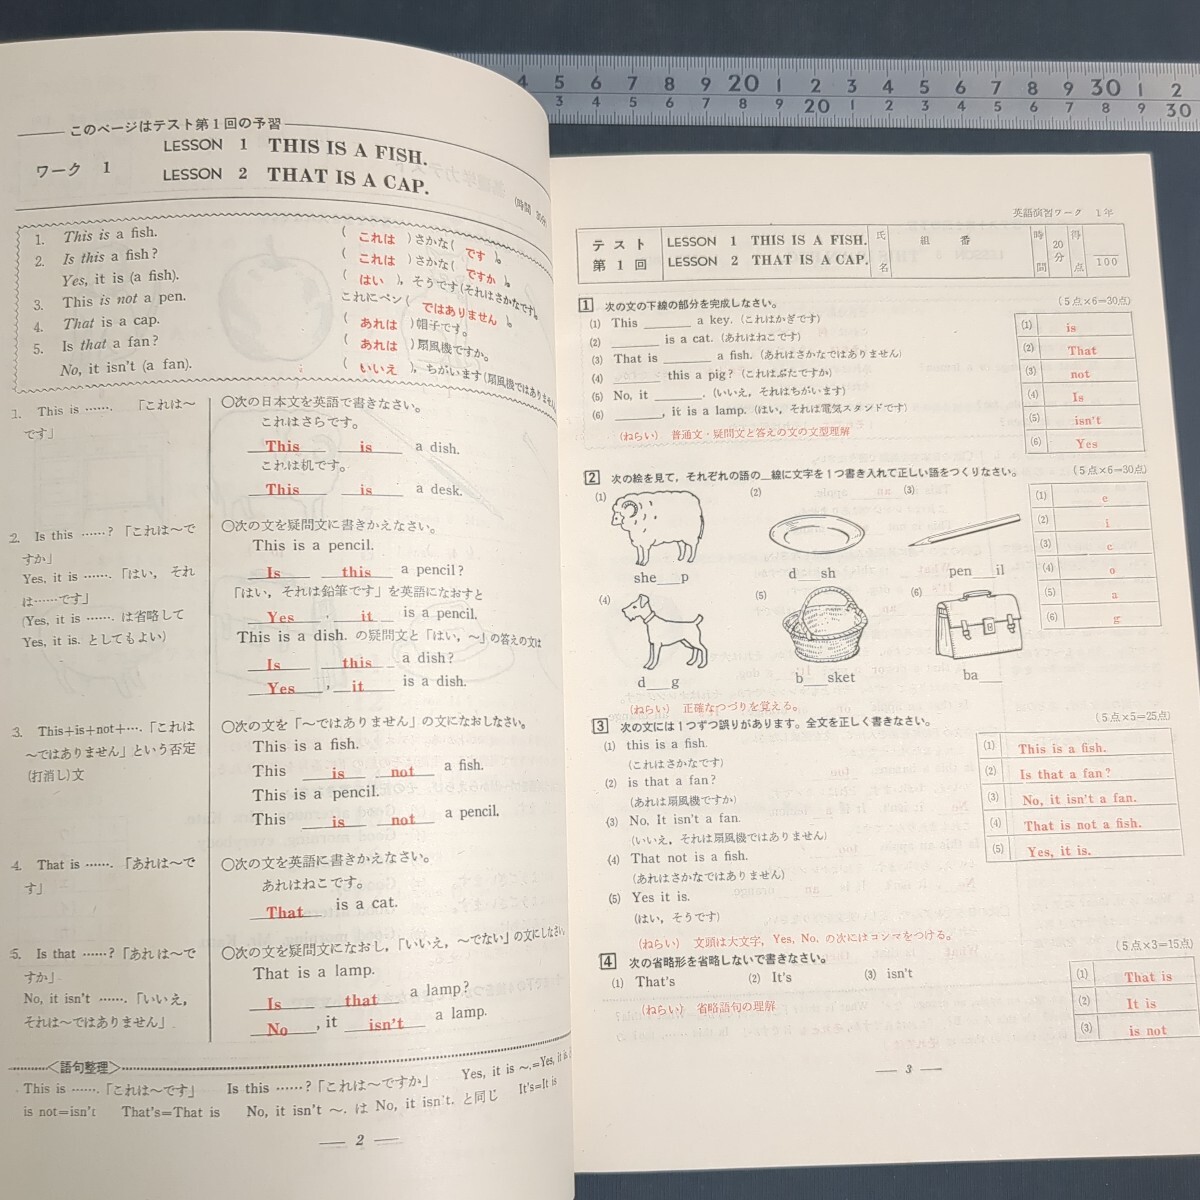 4 5 6 7 8 9 20 1 2 3 4 5 6 7 8 9 30 1 2
3 4 5 6 7 8 9 20 1 2 3 4 5 6 7 8 9 30
このページはテスト第1回の予習
ワーク 1
LESSON 1 THIS IS A FISH.
LESSON 2 THAT IS A CAP.
1. This is a fish. ( これは )さかな( です )。
2. Is this a fish? ( これは )さかな( ですか )。
Yes, it is (a fish). ( はい ), そうです(それはさかなです)。
3. This is not a pen. これにペン( ではありません )。
4. That is a cap. ( あれは )帽子です。
5. Is that a fan? ( あれは )扇風機ですか。
No, it isn't (a fan). ( いいえ ), ちがいます(扇風機ではありません
1. This is ……. 「これは〜です」
〇次の日本文を英語で書きなさい。
これはさらです。
This is a dish.
これは机です。
This is a desk.
2. Is this ……? 「これは〜ですか」
Yes, it is ……. 「はい, それは……です」
(Yes, it is ……. は省略して Yes, it is. としてもよい)
〇次の文を疑問文に書きかえなさい。
This is a pencil.
Is this a pencil?
「はい, それは鉛筆です」を英語になおすと
Yes, it is a pencil.
This is a dish. の疑問文と「はい, 〜」の答えの文は
Is this a dish?
Yes, it is a dish.
3. This+is+not+…. 「これは〜ではありません」という否定(打消し)文
〇次の文を「〜ではありません」の文になおしなさい。
This is a fish.
This is not a fish.
This is a pencil.
This is not a pencil.
4. That is ……. 「あれは〜です」
〇次の文を英語に書きかえなさい。
あれはねこです。
That is a cat.
5. Is that ……? 「あれは〜ですか」
No, it isn't ……. 「いいえ, それは〜ではありません」
〇次の文を疑問文になおし,「いいえ, 〜でない」の文にしなさい。
That is a lamp.
Is that a lamp?
No, it isn't a lamp.
〈語句整理〉
This is ……. 「これは〜です」 Is this ……? 「これは〜ですか」 Yes, it is 〜.=Yes, it is
is not=isn't That's=That is No, it isn't 〜. は No, it isn't. と同じ It's=It is
— 2 —
英語演習ワーク 1年
テスト 第1回
LESSON 1 THIS IS A FISH.
LESSON 2 THAT IS A CAP.
氏名 組 番 時間 20分 得点 100
1 次の文の下線の部分を完成しなさい。 (5点×6=30点)
(1) This ____ a key. (これはかぎです)
(2) ____ is a cat. (あれはねこです)
(3) That is ____ a fish. (あれはさかなではありません)
(4) ____ this a pig? (これはぶたですか)
(5) No, it ____. (いいえ, それはちがいます)
(6) ____, it is a lamp. (はい, それは電気スタンドです)
(ねらい) 普通文・疑問文と答えの文の文型理解
(1) is
(2) That
(3) not
(4) Is
(5) isn't
(6) Yes
2 次の絵を見て, それぞれの語の__線に文字を1つ書き入れて正しい語をつくりなさい。 (5点×6=30点)
(1) she__p
(2) d__sh
(3) pen__il
(4) d__g
(5) b__sket
(6) ba__
(ねらい) 正確なつづりを覚える。
(1) e
(2) i
(3) c
(4) o
(5) a
(6) g
3 次の文には1つずつ誤りがあります。全文を正しく書きなさい。 (5点×5=25点)
(1) this is a fish.
(これはさかなです)
(2) is that a fan?
(あれは扇風機ですか)
(3) No, It isn't a fan.
(いいえ, それは扇風機ではありません)
(4) That not is a fish.
(あれはさかなではありません)
(5) Yes it is.
(はい, そうです)
(ねらい) 文頭は大文字, Yes, No. の次にはコンマをつける。
(1) This is a fish.
(2) Is that a fan?
(3) No, it isn't a fan.
(4) That is not a fish.
(5) Yes, it is.
4 次の省略形を省略しないで書きなさい。 (5点×3=15点)
(1) That's (2) It's (3) isn't
(ねらい) 省略語句の理解
(1) That is
(2) It is
(3) is not
— 3 —